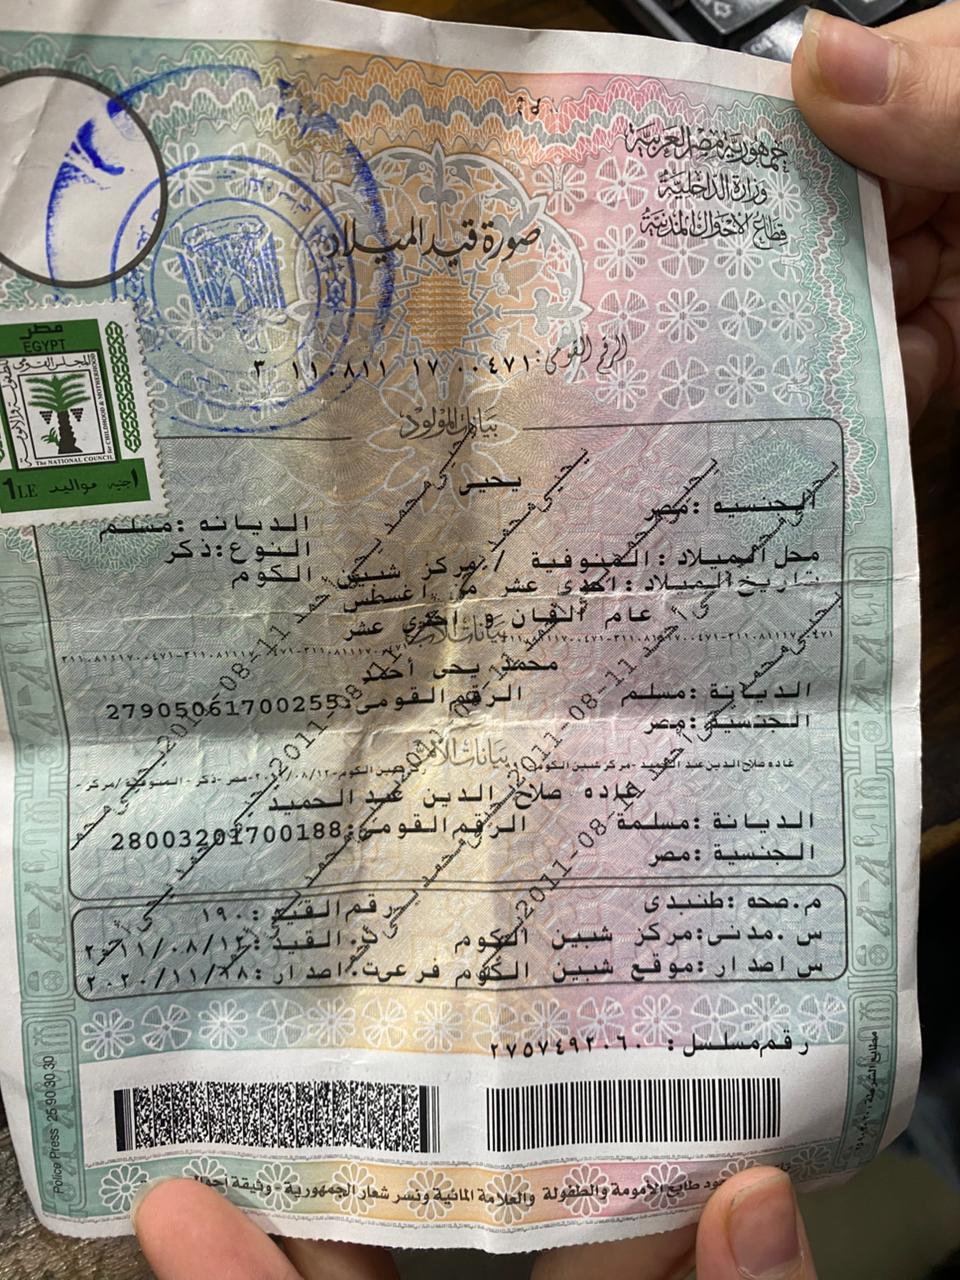 جمهورية مصر العربية
وزارة الداخلية
قطاع الأحوال المدنية
صورة قيد الميلاد
الرقم القومى: ٣ ١١٠٨١١ ١٧ ٠٠٤٧١
مصر
EGYPT
The NATIONAL COUNCIL
for CHILDHOOD & MOTHERHOOD
1LE مواليد ١جنيه
بيانات المولود
يحيى
الجنسيه :مصر
الديانه :مسلم
النوع:ذكر
محل الميلاد : المنوفية / مركز شبين الكوم
تاريخ الميلاد : احدى عشر من اغسطس
عام الفان و احدى عشر
بيانات الأب
محمد يحى أحمد
الديانة :مسلم
الرقم القومى:27905061700255
الجنسية :مصر
بيانات الأم
غاده صلاح الدين عبد الحميد
الديانة :مسلمة
الرقم القومى:28003201700188
الجنسية :مصر
م.صحه :طنبدى
رقم القيد :١٩٠
س .مدنى:مركز شبين الكوم
ت.القيد :٢٠١١/٠٨/١٢
س اصدار :موقع شبين الكوم فرعى
ت.اصدار :٢٠٢٠/١١/١٨
رقم مسلسل : ٢٧٥٧٤٩٢٠٦٠
Police Press 25 90 30 30
مطابع الشرطة
طابع الأمومة والطفولة والعلامة المائية ونسر شعار الجمهورية - وثيقة